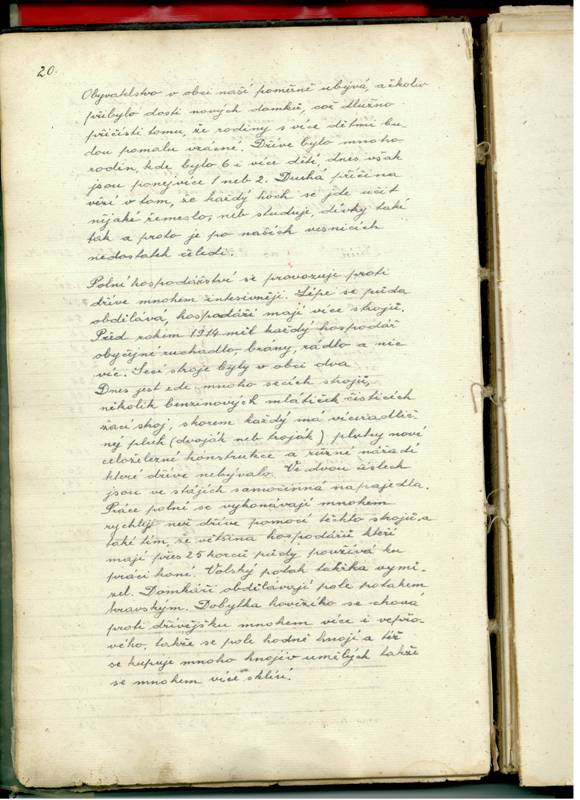 20.
Obyvatelstvo v obci naší poměrně ubývá, ačkoliv
přibylo dosti nových domků, což dlužno
přičísti tomu, že rodiny s více dětmi bu-
dou pomalu vzácné. Dříve bylo mnoho
rodin, kde bylo 6 i více dětí, dnes však
jsou ponejvíce 1 neb 2. Druhá příčina
vězí v tom, že každý hoch se jde učit
nějaké řemeslo, neb studuje, dívky také
tak a proto je po našich vesnicích
nedostatek čeledi.
Polní hospodářství se provozuje proti
dříve mnohem intensivněji. Lépe se půda
obdělává, hospodáři mají více strojů.
Před rokem 1914 měl každý hospodář
obyčejné ruchadlo, brány, rádlo a nic
víc. Secí stroje byly v obci dva
Dnes jest zde mnoho secích strojů,
několik benzinových mlátiček čistících
žací stroj, skorem každý má víceradlič-
ný pluh (dvoják neb troják), pluhy nové
celoželezné konstrukce a různé nářadí
které dříve nebývalo. Ve dvou číslech
jsou ve stájích samočinná napajedla.
Práce polní se vykonávají mnohem
rychleji než dříve pomocí těchto strojů, a
také tím, že většina hospodářů kteří
mají přes 25 korců půdy používá ku
práci koně. Volský potah takřka vymi-
zel. Domkáři obdělávají pole potahem
kravským. Dobytka hovězího se chová
proti dřívějšku mnohem více i vepřo-
vého, takže se pole hodně hnojí a též
se kupuje mnoho hnojiv umělých takže
se mnohem více sklízí.